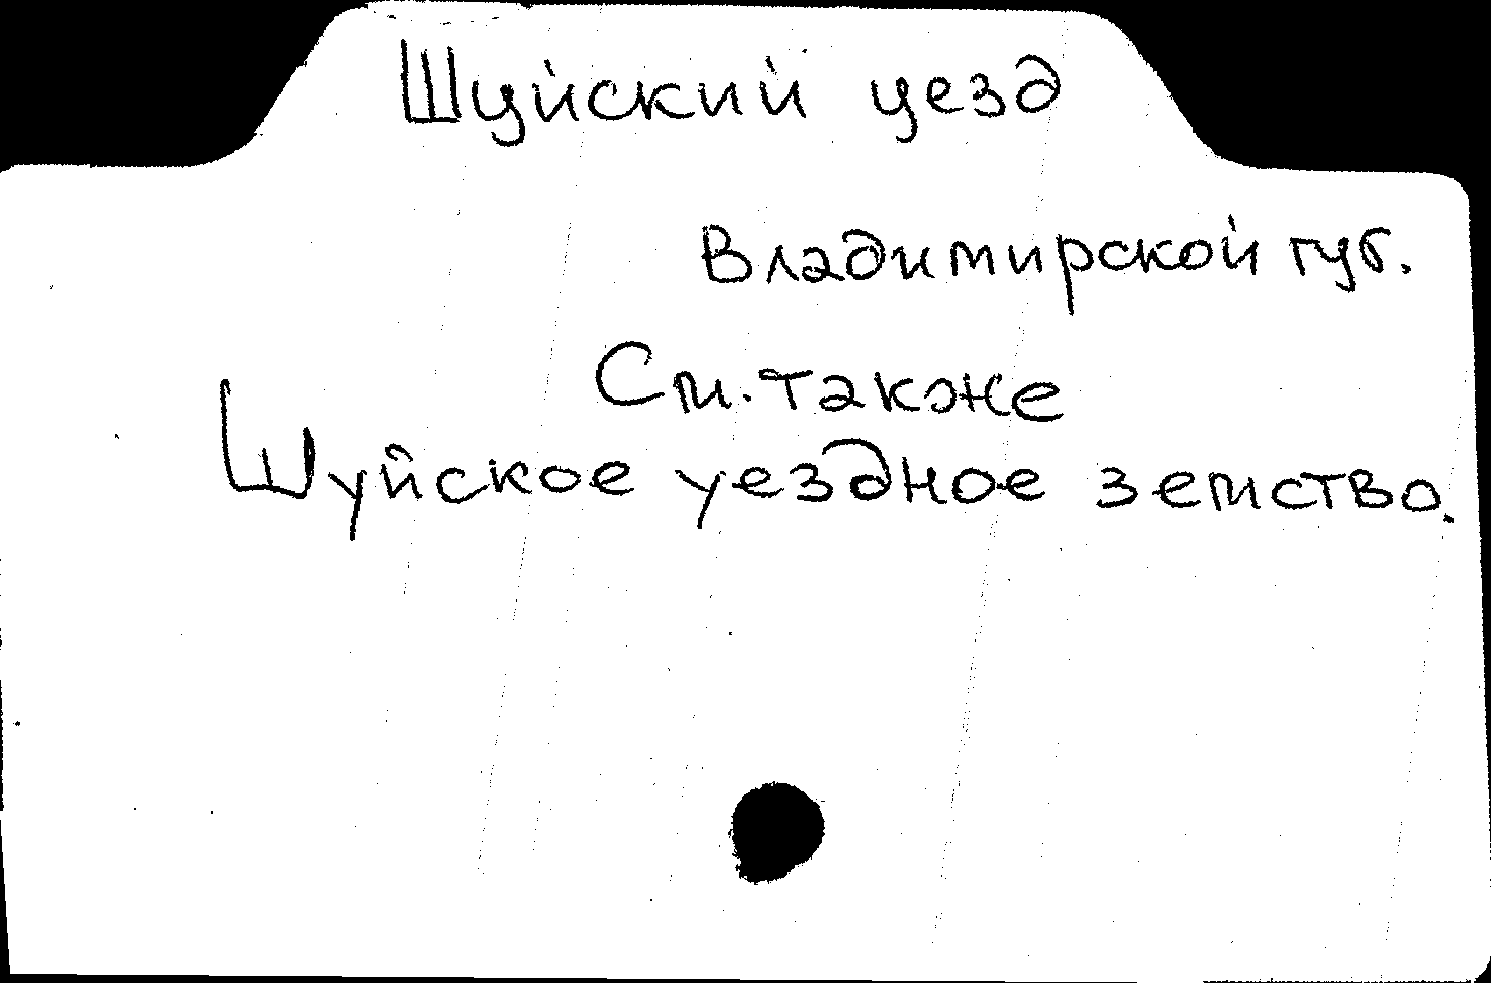 Шуйский уезд
Владимирской губ.
См. также
Шуйское уездное земство.